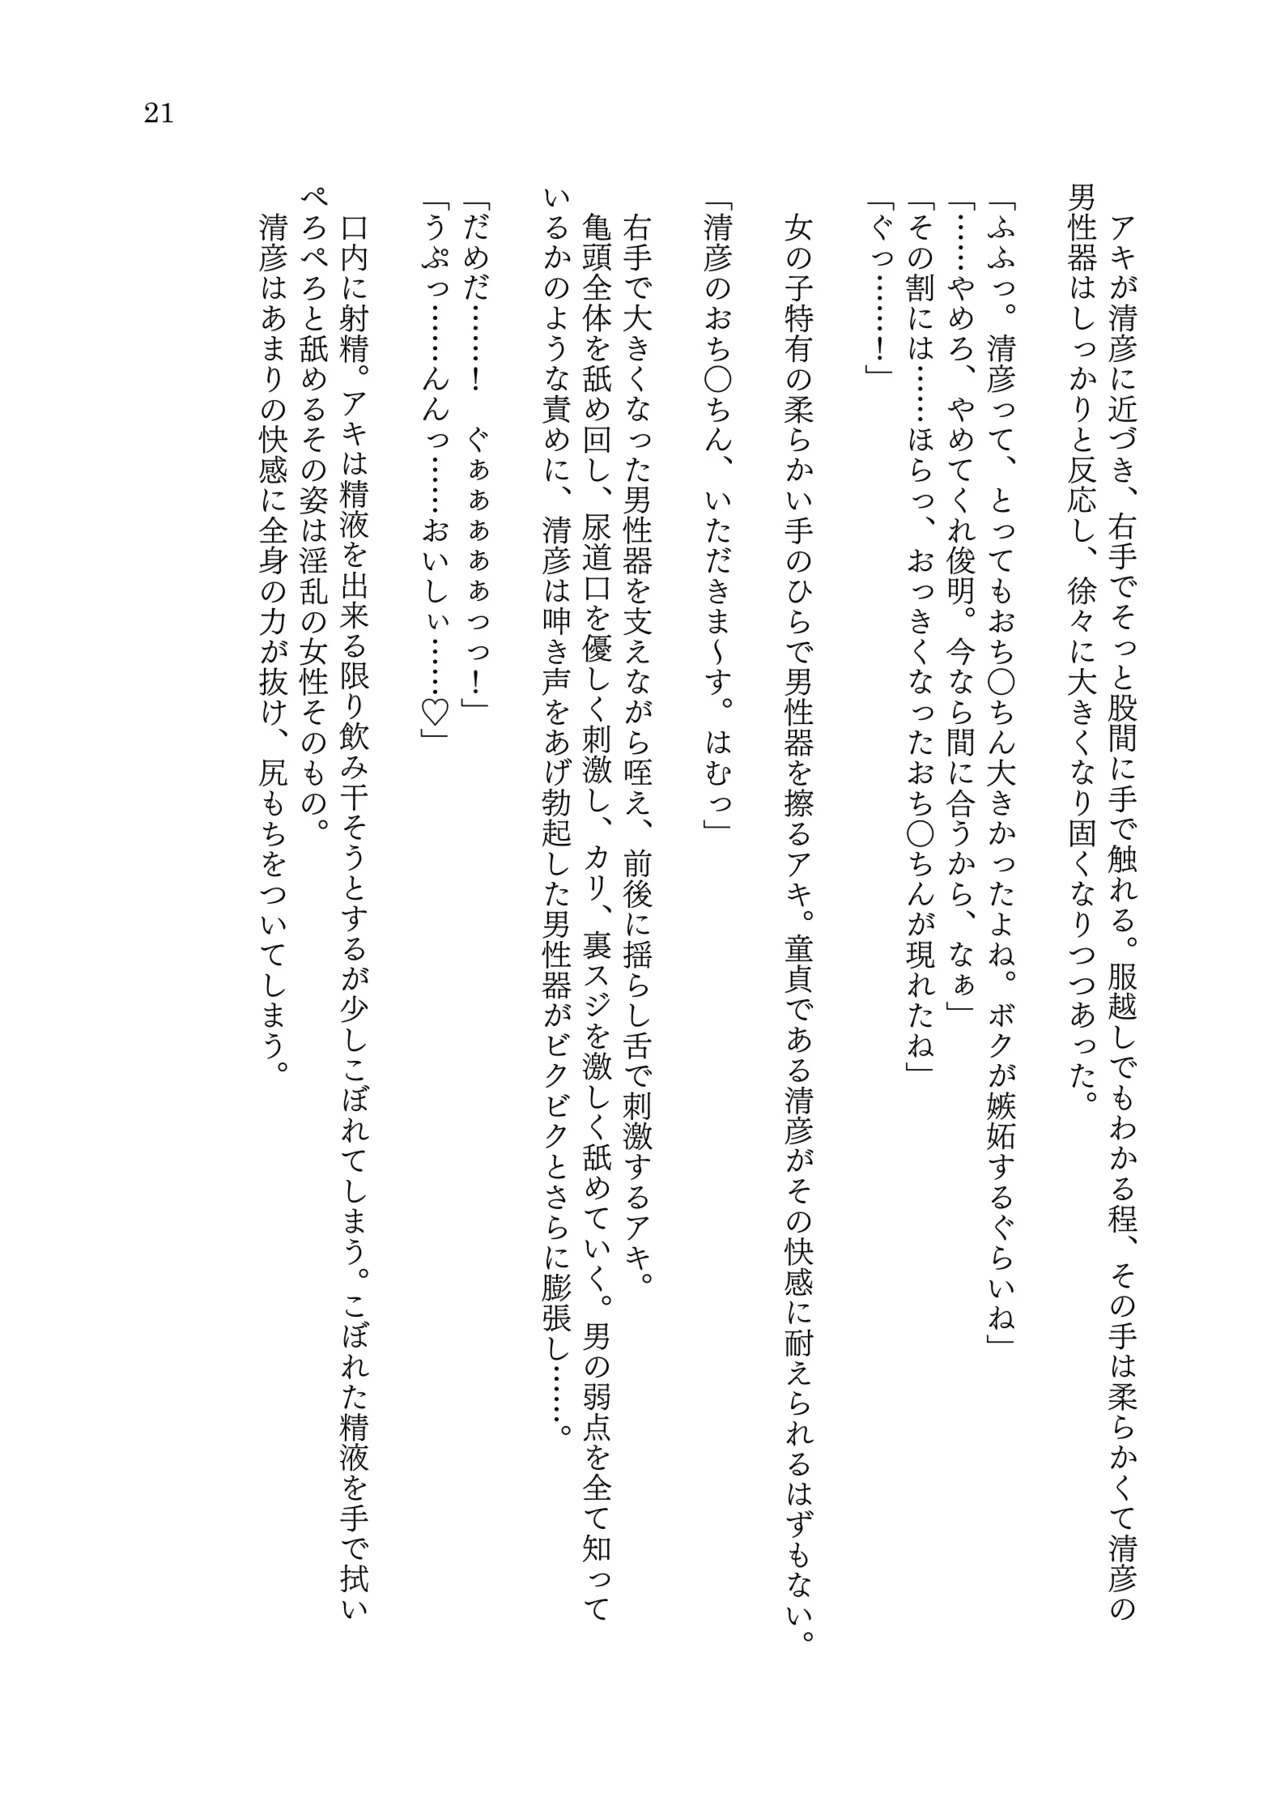 21
アキが清彦に近づき、右手でそっと股間に手で触れる。服越しでもわかる程、その手は柔らかくて清彦の
男性器はしっかりと反応し、徐々に大きくなり固くなりつつあった。
「ふふっ。清彦って、とってもおち〇ちん大きかったよね。ボクが嫉妬するぐらいね」
「……やめろ、やめてくれ俊明。今なら間に合うから、なぁ」
「その割には……ほらっ、おっきくなったおち〇ちんが現れたね」
「ぐっ……！」
女の子特有の柔らかい手のひらで男性器を擦るアキ。童貞である清彦がその快感に耐えられるはずもない。
「清彦のおち〇ちん、いただきま～す。はむっ」
右手で大きくなった男性器を支えながら咥え、前後に揺らし舌で刺激するアキ。
亀頭全体を舐め回し、尿道口を優しく刺激し、カリ、裏スジを激しく舐めていく。男の弱点を全て知って
いるかのような責めに、清彦は呻き声をあげ勃起した男性器がビクビクとさらに膨張し……。
「だめだ……！　ぐぁぁぁぁぁっっ！」
「うぷっ……んんっ……おいしぃ……♡」
口内に射精。アキは精液を出来る限り飲み干そうとするが少しこぼれてしまう。こぼれた精液を手で拭い
ぺろぺろと舐めるその姿は淫乱の女性そのもの。
清彦はあまりの快感に全身の力が抜け、尻もちをついてしまう。